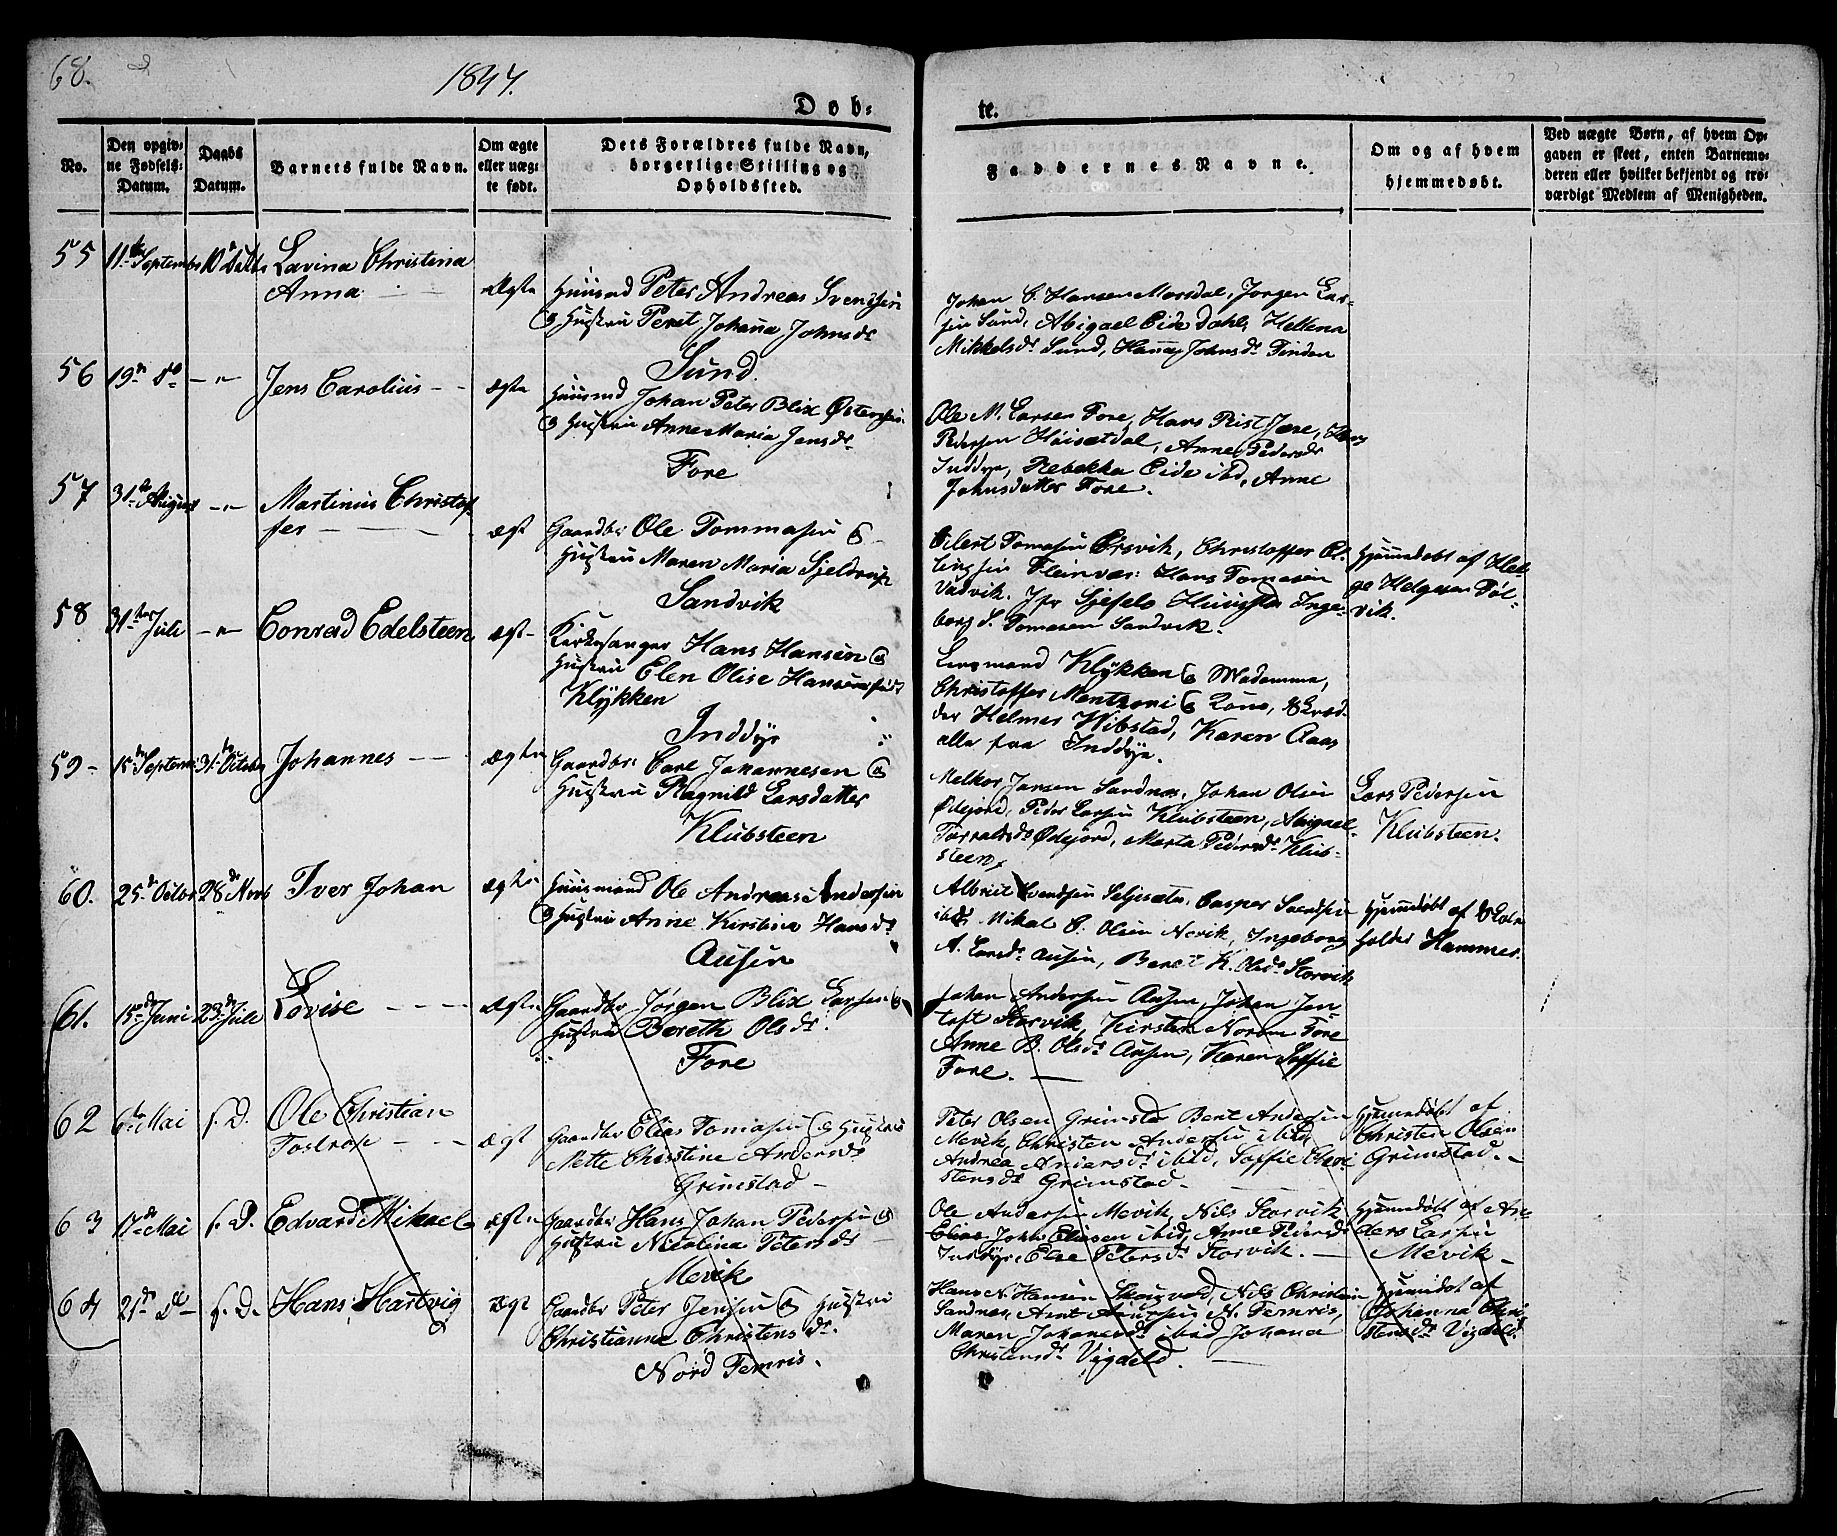 68.
1847.
Døb-
te.
No.
Den opgiv-
ne Fødsels-
Datum.
Daabs
Datum.
Barnets fulde Navn.
Om ægte
eller uæg-
te født.
Dets Forældres fulde Navn,
borgerlige Stilling og
Opholdssted.
Faddernes Navne.
Om og af hvem
hjemmedøbt.
Ved uægte Børn, af hvem Op-
gaven er skeet, enten Barnemo-
deren eller hvilket bekjendt og tro-
værdigt Medlem af Menigheden.
55 Lavina Christina
Anna
Ægte Huusmd Peter Andreas Svendsen
& Hustru Peret Johanna Johnsdr
Sund.
Johan C. Hansen Mørsdal, Jørgen Lar-
sen Sund, Abigael Eide Dahl, Hellena
Mikkelsdr Sund, Hanna Johnsdr Finden
56 19n do Jens Carolius
ægte Huusmd Johan Peter Blix
& Hustru Anne Maria Jensdr
Fore
Ole M. Larsen Fore, Hans Rist
Pedersen Høisætdal, Anne Pedersdr
Inddyr, Rebekka Eide ibd, Anne
Johnsdatter Fore.
57 31te August Martinius Christof-
fer
ægt Gaardbr Ole Tommasen &
Hustru Maren Maria
Sandvik
Eilert Tomasen Ørsvik, Christoffer El-
lingsen Fleinvær, Hans Tomasen
Vadvik, Jfr Inge-
borg S. Tomasen Sandvik.
Hjemmdøbt af Hel-
ge Helgesen Søl-
vik.
58 31te Juli Conrad Edelsteen
ægt Kirkesanger Hans Hansen &
Hustru Elen Olise Hansen født
Klykken
Inddyr
Klykken & Madamme,
Christoffer Mentzoni & Kone,
Helmer Wibstad, Karen Aas
alle fra Inddyr.
59 15de Septem 31te Octobr Johannes
ægte Gaardbr Carl Johannesen &
Hustru Ragnild Larsdatter
Klubsteen
Melkor Jansen Sandnes, Johan Olsen
Ødejord, Peder Larsen Klubsteen, Abigael
Torvalsdr Ødejord, Marta Pedersdr Klub-
steen
Lars Pedersen
Klubsteen.
60. 25de Octbr 28de Novb Iver Johan
ægte Huusmand Ole Andreas Andersen
& Hustru Anne Kirstina Hansdr
Ausen
Albrict Svendsen Seljesæter, Casper Svendsen
ibd, Mikal C. Olsen Nevik, Ingeborg
A. Larsdr Ausen, Beret K. Olsdr Storvik
Hjemmdøbt af
Hammer.
61. 15de Juni 23de Juli Lovise
ægte Gaardbr Jørgen Blix Larsen &
Hustru Bereth Olsdr.
Fore
Johan Andersen Ausen, Johan Jen-
toft Storvik, Kirsten Norum Fore
Anne B. Olsdr Ausen, Karen Soffie
Fore.
62 6te Mai s. D. Ole Christian
Tostrop
ægt Gaardbr Elias Tomasen & Hustru
Mette Christine Andersdr
Grimstad
Peter Olsen Grimstad Bent Andersen
Mevik, Christen Andersen ibid,
Andrea Andersdr ibid, Soffie Chri
stensdr Grimstad.
Hjemmdøbt af
Christen Olsen
Grimstad.
63 17de Mai s. D. Edvard Mikael
ægte Gaardbr Hans Johan Pedersen &
Hustru Nicolina Petersdr
Mevik
Ole Andersen Mevik, Nils Storvik
Elias John Eliasen ibid, Anne Pedersdr
Inddyr, Else Petersdr Storvik.
Hjemmdøbt af An-
ders Larsen
Mevik
64 21de Do s. D. Hans Hartvig
ægt Gaardbr Peter Jensen & Hustru
Christianna Christensdr.
Nord Femris.
Hans N. Hansen Skogvold, Nils Christian
Sandnes, Arnt Andersen N. Femris,
Maren Johansdr ibid, Johana
Christensdr Vigdeld.
Hjemmdøbt af
Johanna Chri
stensdr Vigdeld